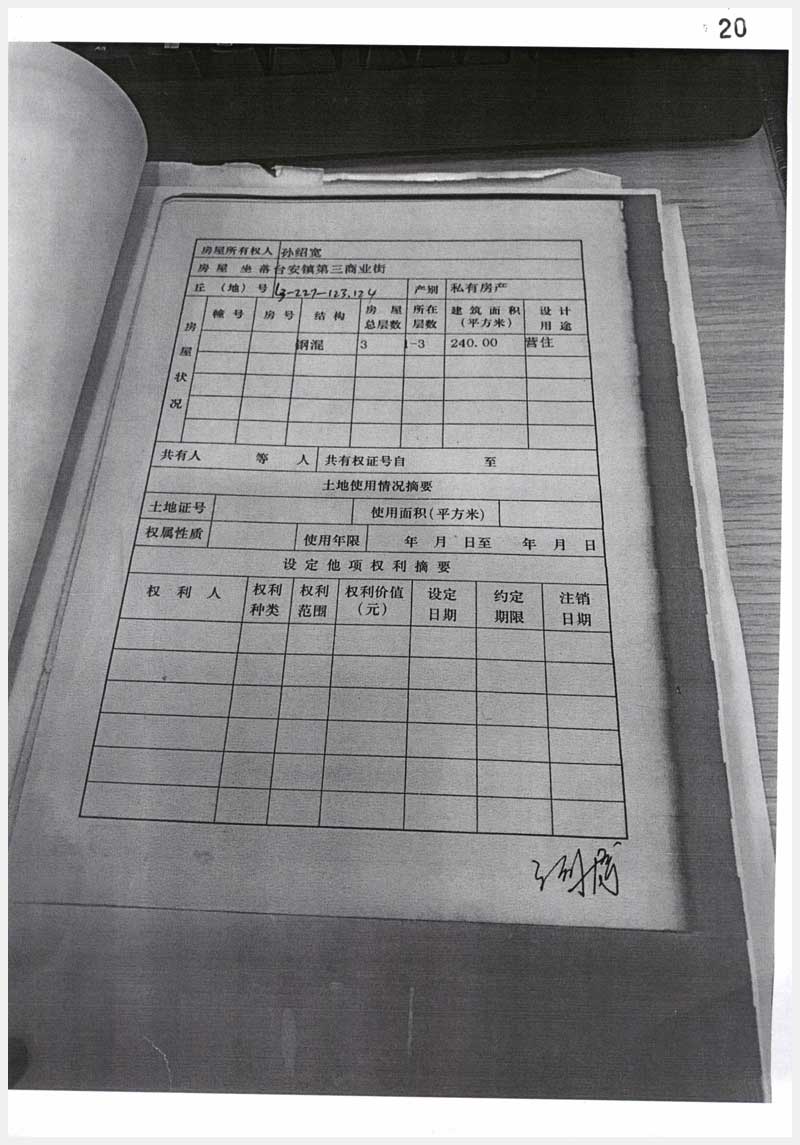 20
房屋所有权人 孙绍宽
房屋坐落 台安镇第三商业街
丘(地)号 3-227-123.124 产别 私有房产
房屋状况
幢号 房号 结构 房屋总层数 所在层数 建筑面积(平方米) 设计用途
钢混 3 1-3 240.00 营住
共有人 等 人 共有权证号自 至
土地使用情况摘要
土地证号 使用面积(平方米)
权属性质 使用年限 年 月 日至 年 月 日
设定他项权利摘要
权利人 权利种类 权利范围 权利价值(元) 设定日期 约定期限 注销日期